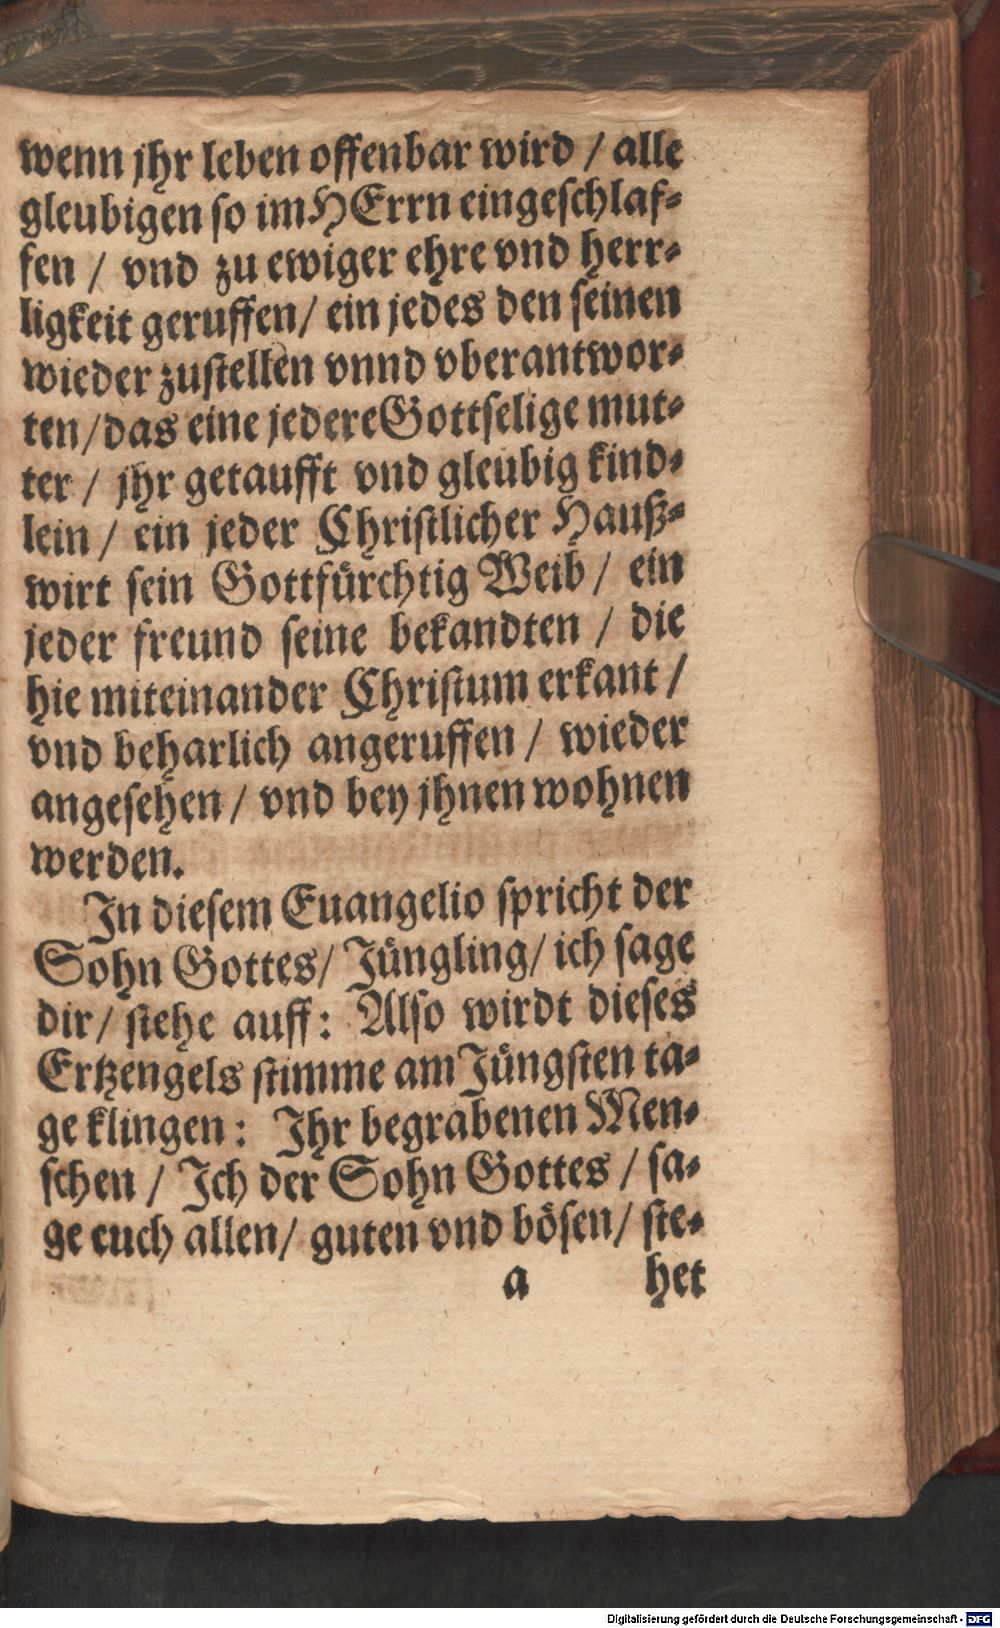 wenn jhr leben offenbar wird / alle
gleubigen so im HErrn eingeschlaf-
fen / vnd zu ewiger ehre vnd herr-
ligkeit geruffen / ein jedes den seinen
wieder zustellen vnnd vberantwor-
ten / das eine jedere Gottselige mut-
ter / jhr getaufft vnd gleubig kind-
lein / ein jeder Christlicher Hauß-
wirt sein Gottfürchtig Weib / ein
jeder freund seine bekandten / die
hie miteinander Christum erkant /
vnd beharlich angeruffen / wieder
angesehen / vnd bey jhnen wohnen
werden.
In diesem Euangelio spricht der
Sohn Gottes / Jüngling / ich sage
dir / stehe auff: Also wirdt dieses
Ertzengels stimme am Jüngsten ta-
ge klingen: Ihr begrabenen Men-
schen / Ich der Sohn Gottes / sa-
ge euch allen / guten vnd bösen / ste-
a het
Digitalisierung gefördert durch die Deutsche Forschungsgemeinschaft - DFG